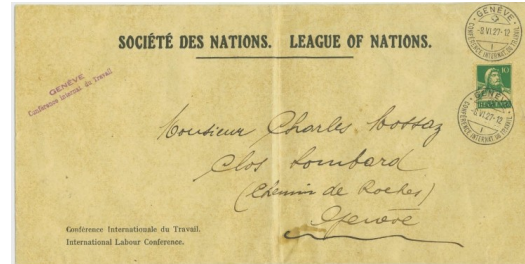 SOCIÉTÉ DES NATIONS. LEAGUE OF NATIONS.
GENÈVE
Conférence internat. du Travail
GENÈVE
-8.VI.27-12
CONFÉRENCE INTERNAT. DU TRAVAIL
1
10
GENÈVE
-8.VI.27-12
CONFÉRENCE INTERNAT. DU TRAVAIL
1
Monsieur Charles
Clos Lombard
(Chemin de Roches)
Genève
Conférence Internationale du Travail.
International Labour Conference.